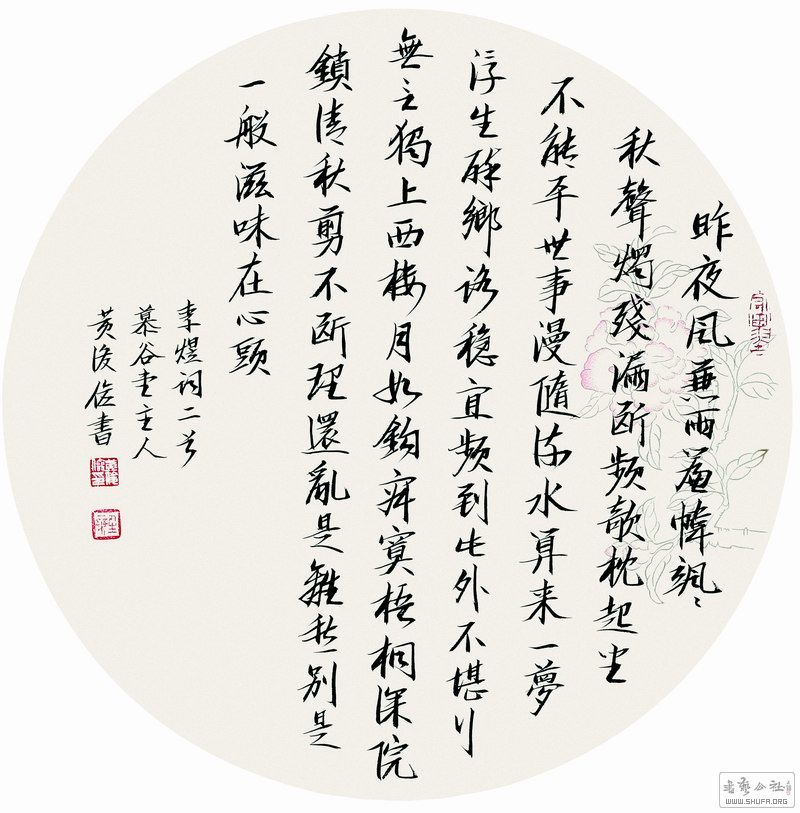 昨夜風兼雨簾幃颯〻
秋聲燭殘漏断頻欹枕起坐
不能平世事漫隨流水算来一夢
浮生醉鄉路穩宜頻到此外不堪行
無言獨上西楼月如鈎寂寞梧桐深院
鎖清秋剪不断理還亂是離愁別是
一般滋味在心頭
李煜詞二首
慕谷堂主人
黄書
书艺公社
WWW.SHUFA.ORG